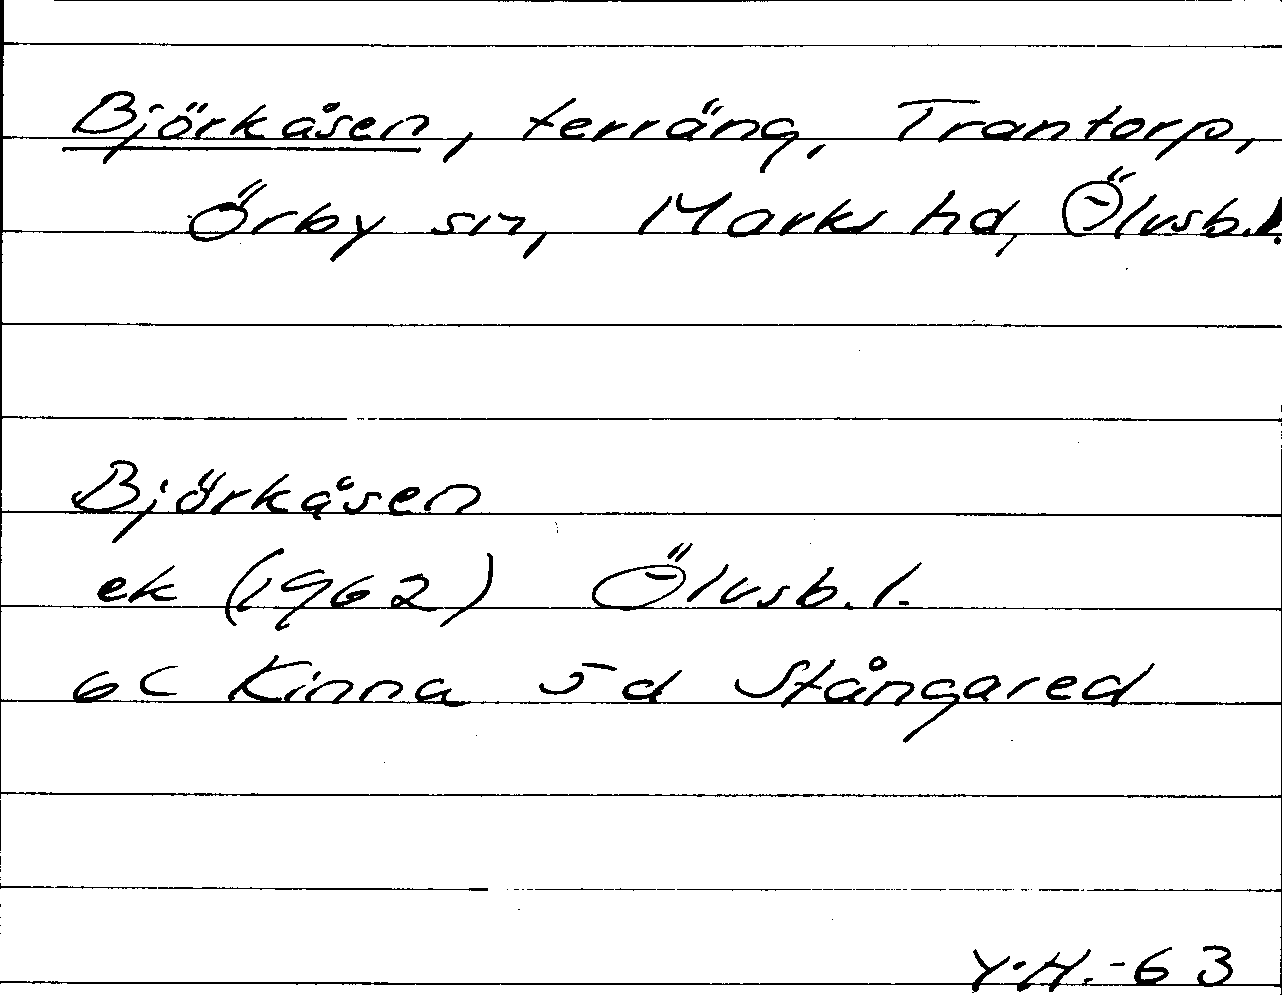 Björkåsen, terräng, Trantorp,
Örby sn, Marks hd, Ölvsb.l.
Björkåsen
ek (1962) Ölvsb.l.
6C Kinna 5d Stångared
Y.H.-63